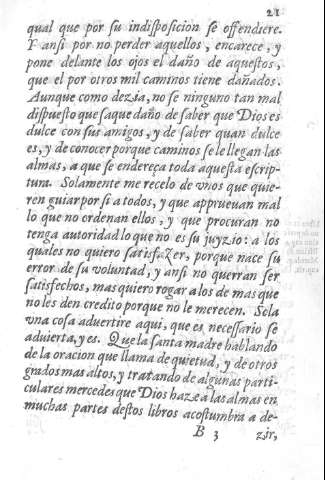 21
qual que por su indisposicion se offendiere.
Y ansi por no perder aquellos, encarece, y
pone delante los ojos el daño de aquestos,
que el por otros mil caminos tiene dañados.
Aunque como dezia, no se ninguno tan mal
dispuesto que saque daño de saber que Dios es
dulce con sus amigos, y de saber quan dulce
es, y de conocer porque caminos se le llegan las
almas, a que se endereça toda aquesta escrip-
tura. Solamente me recelo de vnos que quie-
ren guiar por si a todos, y que aprueuan mal
lo que no ordenan ellos, y que procuran no
tenga autoridad lo que no es su juyzio: a los
quales no quiero satisfazer, porque nace su
error de su voluntad, y ansi no querran ser
satisfechos, mas quiero rogar a los de mas que
no les den credito porque no le merecen. Sola
vna cosa aduertire aqui, que es necessario se
aduierta, y es. Que la santa madre hablando
de la oracion que llama de quietud, y de otros
grados mas altos, y tratando de algunas parti-
culares mercedes que Dios haze a las almas en
muchas partes destos libros acostumbra a de-
B 3 zir,